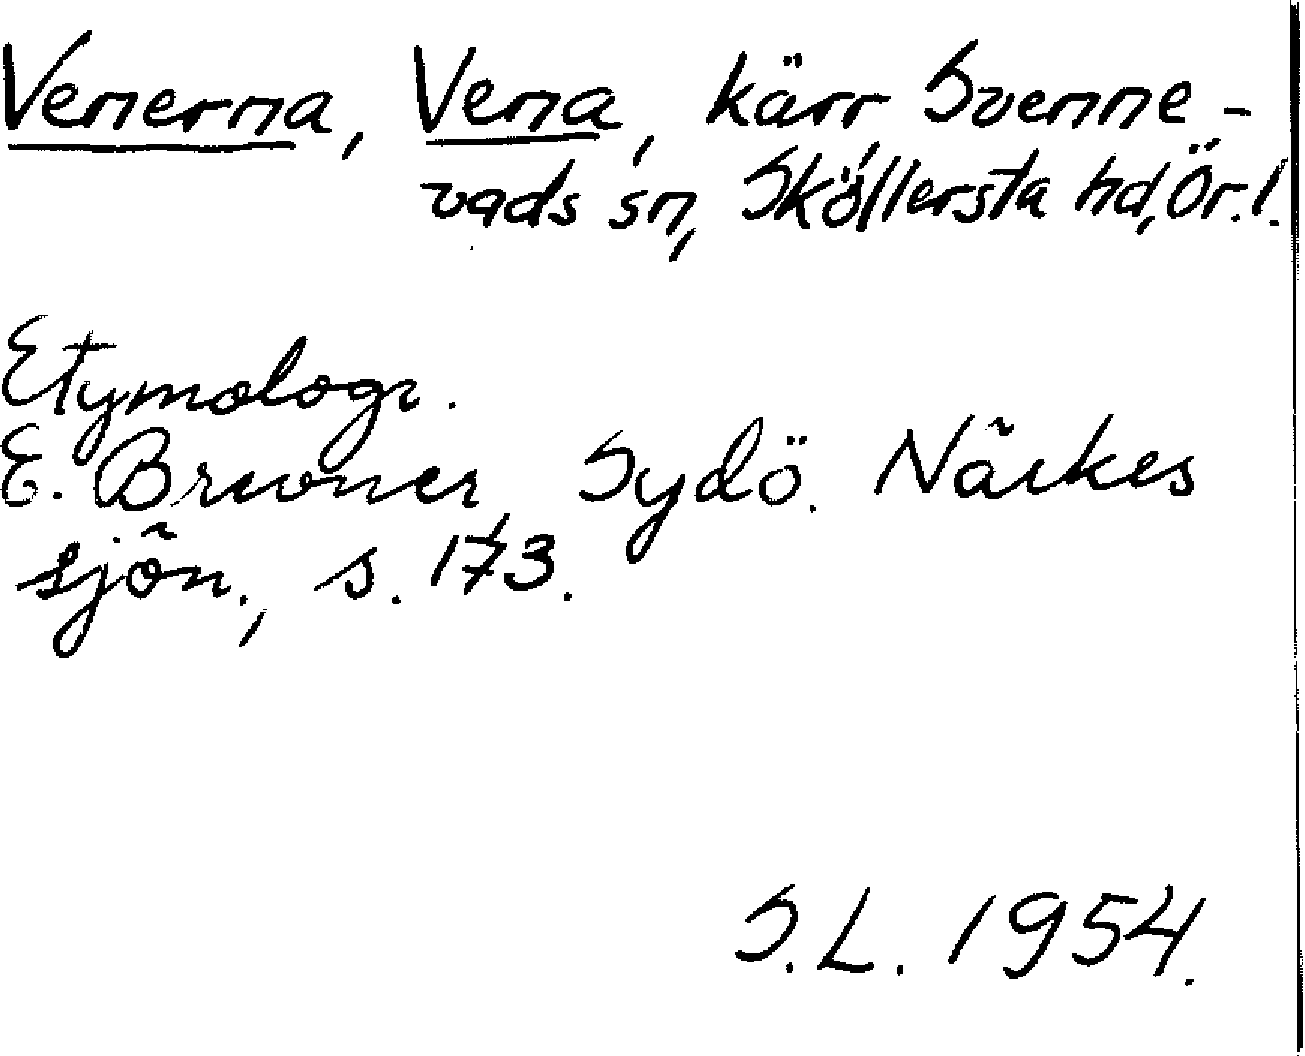 Venerna, Vena, kärr, Svenne-
vads sn, Sköllersta hd, Ör. l.
Etymologi.
E. Brevner, Sydö. Närkes
sjön., s. 173.
S.L. 1954.